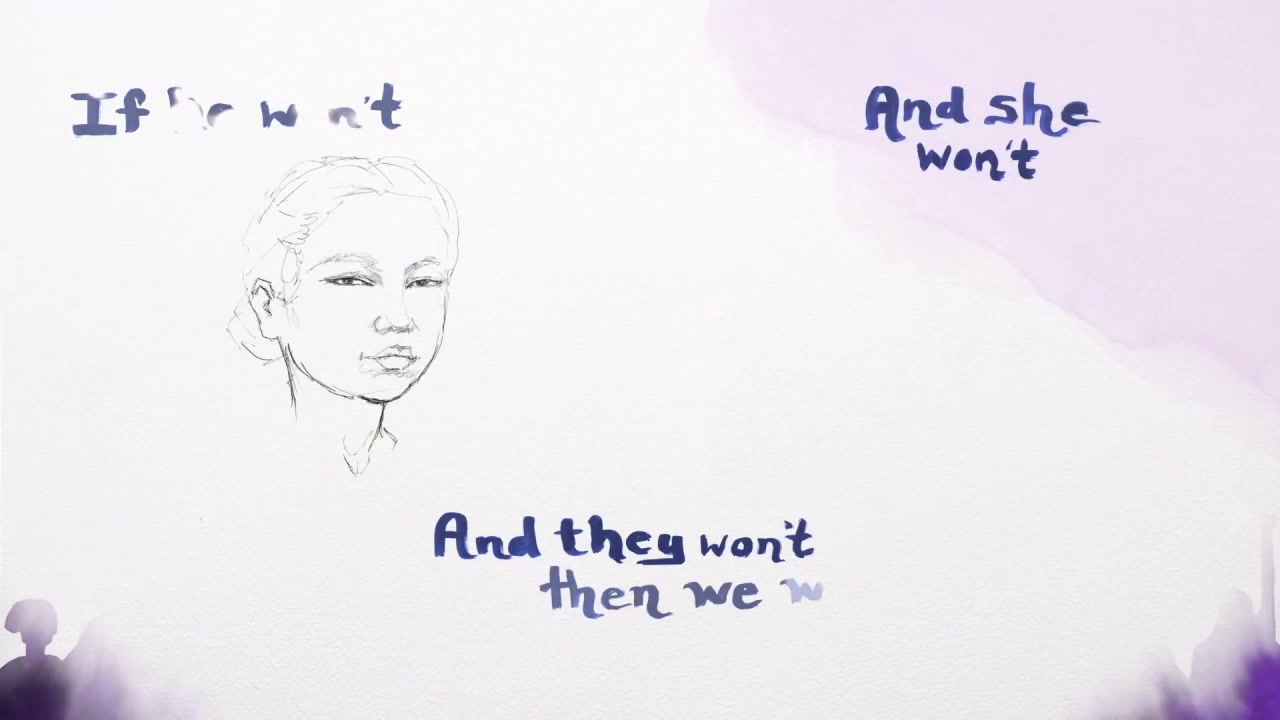 If won't
And she
won't
And they won't
then we